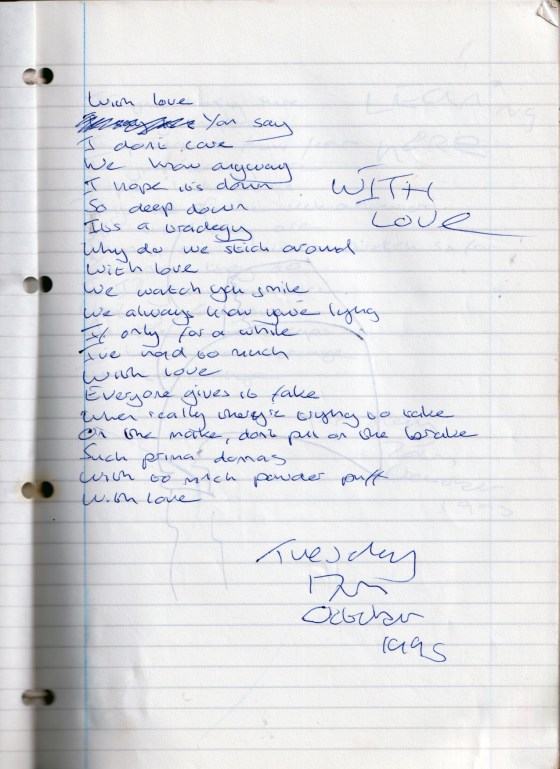 With love
You say
I dont care
We know anyway
I hope its down
So deep down
WITH
LOVE
Its a tradegy
Why do we stick around
With love
We watch you smile
We always know you're lying
If only for a while
I've had to much
With love
Everyone gives its fake
When really they're trying to take
On the make, don't put on the brake
Such prima donnas
With to much powder puff
With love
Tuesday
17th
October
1995